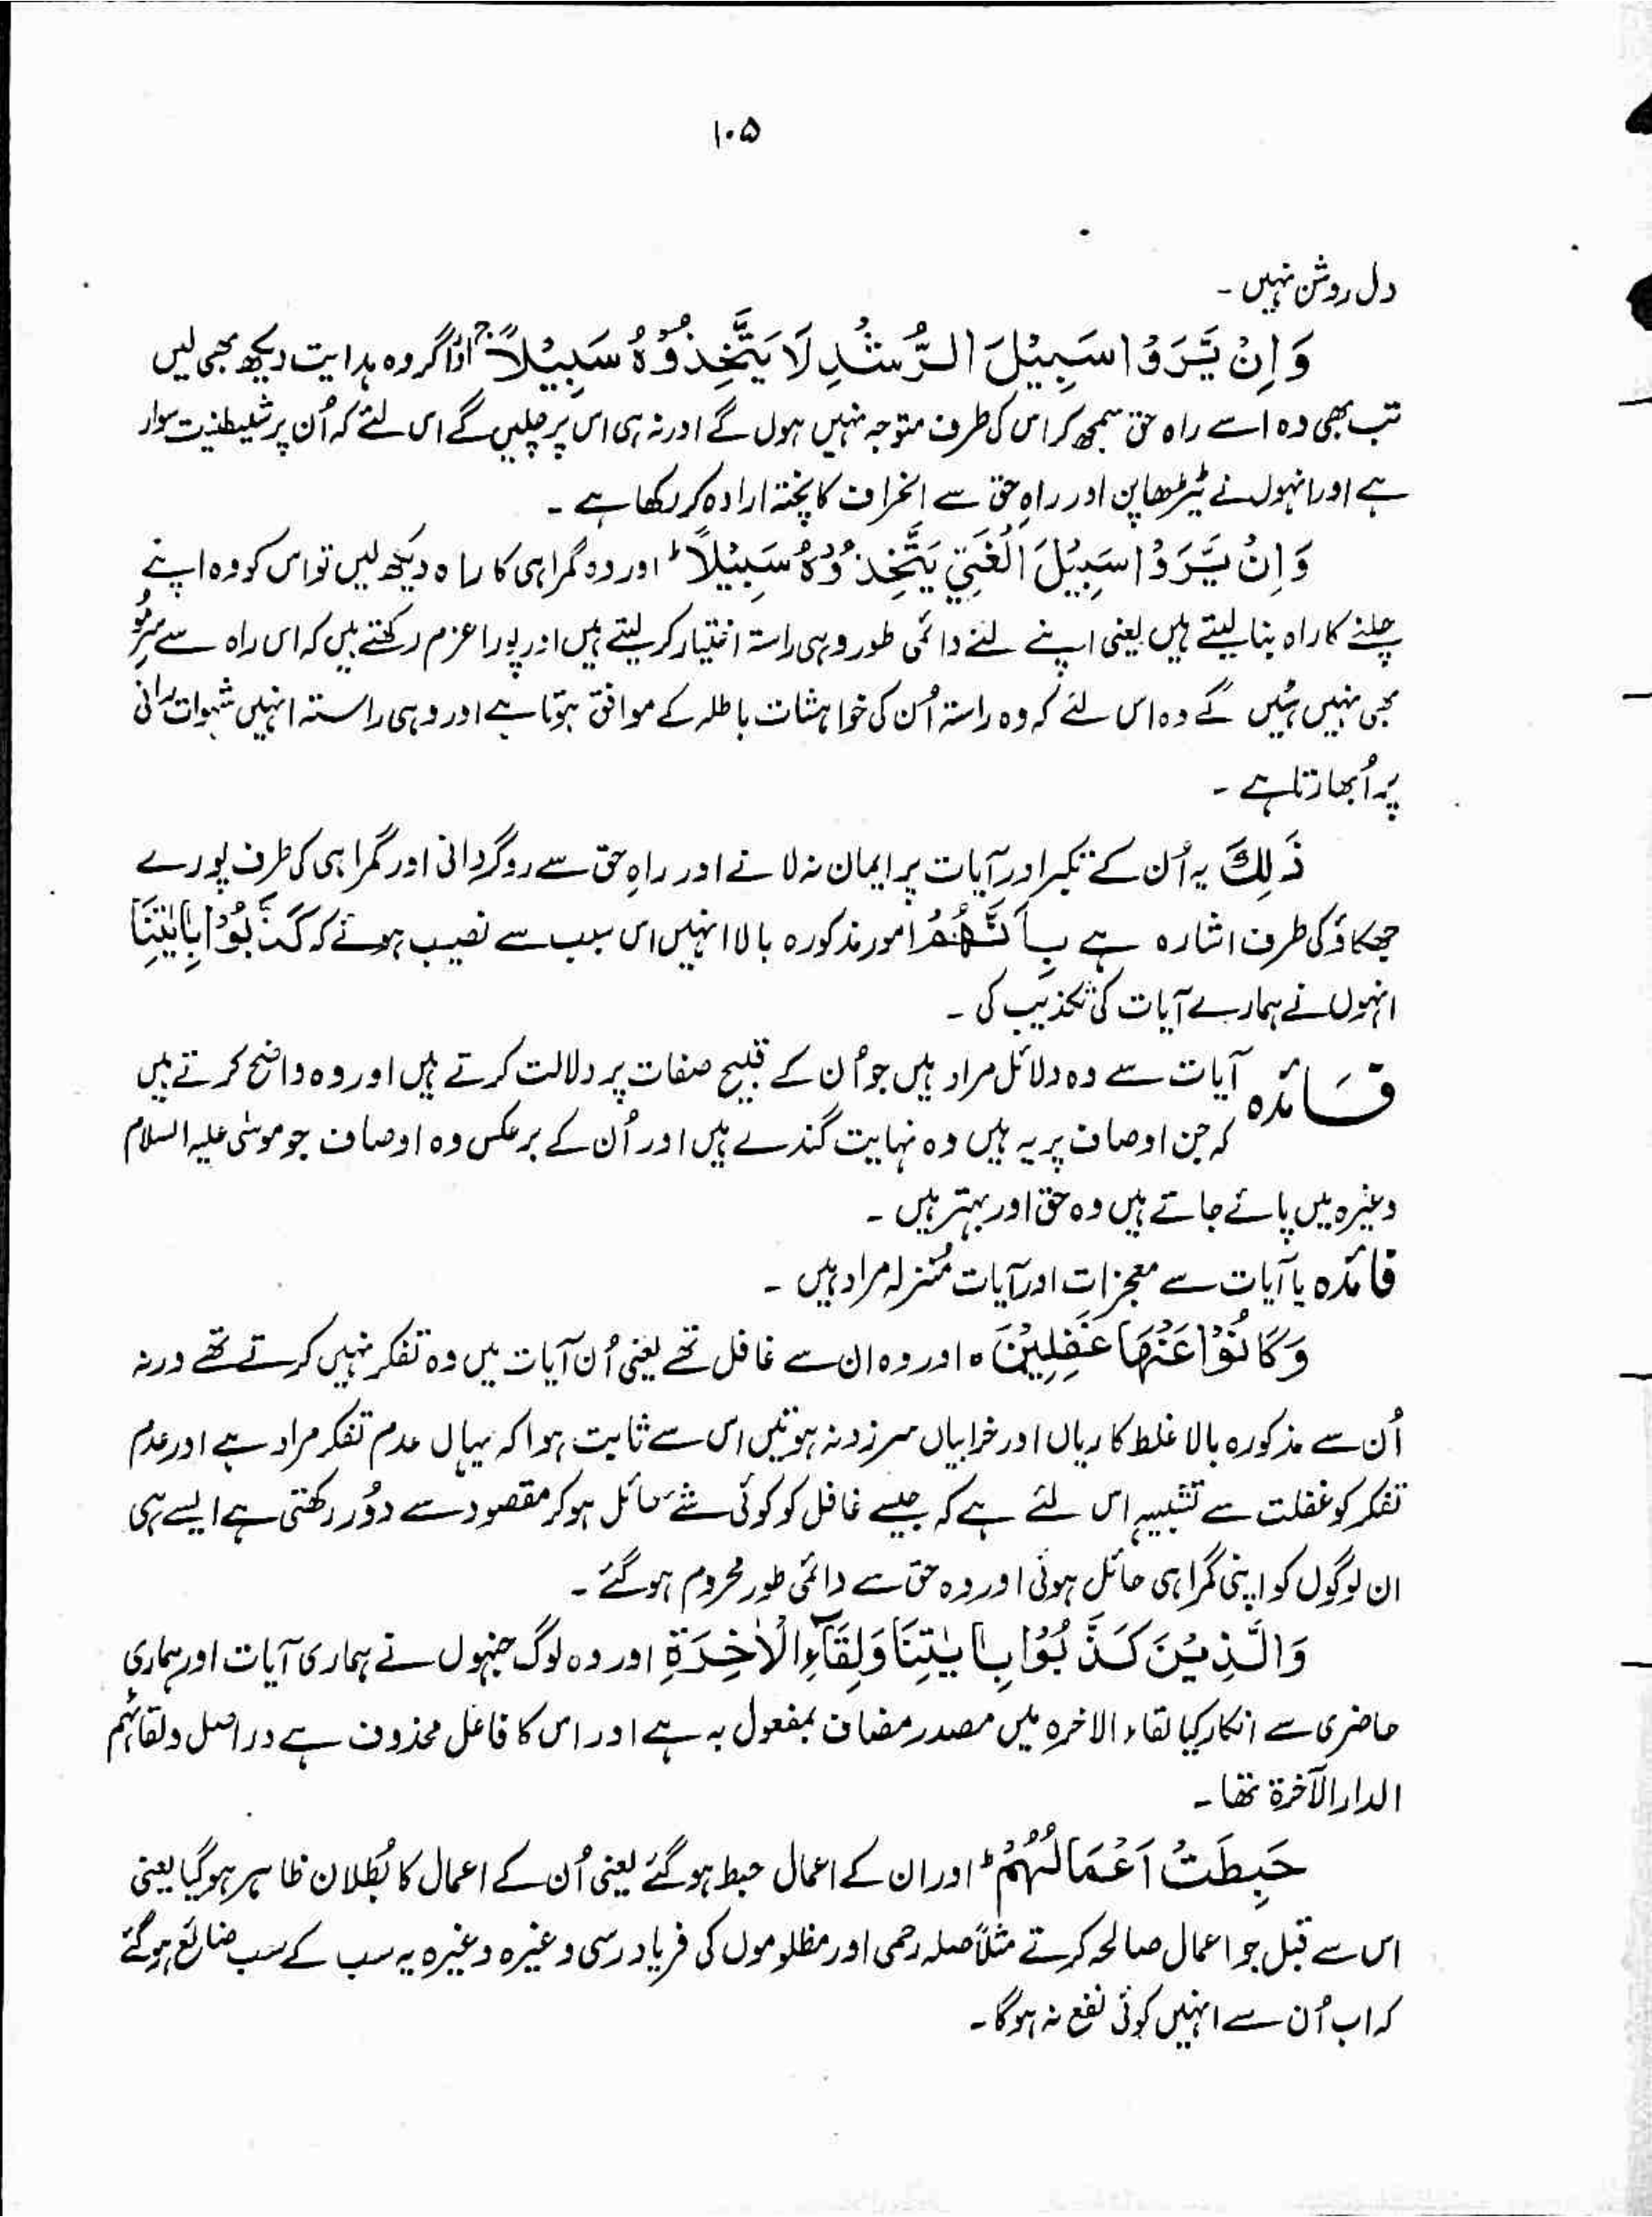 ۱۰۵
دل روشن نہیں ۔
وَ اِنْ یَّرَوْا سَبِیْلَ الرُّشْدِ لَا یَتَّخِذُوْهُ سَبِیْلًا ۚ اوراگر وہ ہدایت دیکھ بھی لیں
تب بھی وہ اسے راہ حق سمجھ کر اس کی طرف متوجہ نہیں ہوں گے اور نہ ہی اس پر چلیں گے اس لئے کہ اُن پر شیطنت سوار
ہے اور انہوں نے ٹیڑھا پن اور راہِ حق سے انحراف کا پختہ ارادہ کر رکھا ہے ۔
وَ اِنْ یَّرَوْا سَبِیْلَ الْغَیِّ یَتَّخِذُوْهُ سَبِیْلًا ؕ اور وہ گمراہی کا راہ دیکھ لیں تو اس کو وہ اپنے
چلنے کا راہ بنا لیتے ہیں یعنی اپنے لئے دائمی طور وہی راستہ اختیار کر لیتے ہیں اور پورا عزم رکھتے ہیں کہ اس راہ سے سرِمُو
بھی نہیں ہٹیں گے وہ اس لئے کہ وہ راستہ اُن کی خواہشات باطلہ کے موافق ہوتا ہے اور وہی راستہ انہیں شہوات رانی
پر اُبھارتا ہے ۔
ذٰلِكَ یہ اُن کے تکبر اور آیات پر ایمان نہ لانے اور راہِ حق سے روگردانی اور گمراہی کی طرف پورے
جھکاؤ کی طرف اشارہ ہے بِاَنَّهُمْ امور مذکورہ بالا انہیں اس سبب سے نصیب ہوئے کہ كَذَّبُوْا بِاٰیٰتِنَا
انہوں نے ہمارے آیات کی تکذیب کی ۔
فائدہ آیات سے وہ دلائل مراد ہیں جو اُن کے قبیح صفات پر دلالت کرتے ہیں اور وہ واضح کرتے ہیں
کہ جن اوصاف پر یہ ہیں وہ نہایت گندے ہیں اور اُن کے برعکس وہ اوصاف جو موسیٰ علیہ السلام
وغیرہ میں پائے جاتے ہیں وہ حق اور بہتر ہیں ۔
فائدہ یا آیات سے معجزات اور آیات مُنزلہ مراد ہیں ۔
وَ كَانُوْا عَنْهَا غٰفِلِیْنَ ۰ اور وہ ان سے غافل تھے یعنی اُن آیات میں وہ تفکر نہیں کرتے تھے ورنہ
اُن سے مذکورہ بالا غلط کاریاں اور خرابیاں سرزد نہ ہوتیں اس سے ثابت ہوا کہ یہاں عدم تفکر مراد ہے اور عدم
تفکر کو غفلت سے تشبیہ اس لئے ہے کہ جیسے غافل کو کوئی شے حائل ہو کر مقصود سے دُور رکھتی ہے ایسے ہی
ان لوگوں کو اپنی گمراہی حائل ہوئی اور وہ حق سے دائمی طور محروم ہو گئے ۔
وَ الَّذِیْنَ كَذَّبُوْا بِاٰیٰتِنَا وَ لِقَآءِ الْاٰخِرَةِ اور وہ لوگ جنہوں نے ہماری آیات اور ہماری
حاضری سے انکار کیا لقاء الاخرہ میں مصدر مضاف بمفعول بہ ہے اور اس کا فاعل محذوف ہے دراصل ولقائہم
الدار الآخرۃ تھا ۔
حَبِطَتْ اَعْمَالُهُمْ ؕ اور ان کے اعمال حبط ہو گئے یعنی اُن کے اعمال کا بُطلان ظاہر ہو گیا یعنی
اس سے قبل جو اعمال صالحہ کرتے مثلاً صلہ رحمی اور مظلوموں کی فریاد رسی وغیرہ وغیرہ یہ سب کے سب ضائع ہو گئے
کہ اب اُن سے انہیں کوئی نفع نہ ہو گا ۔